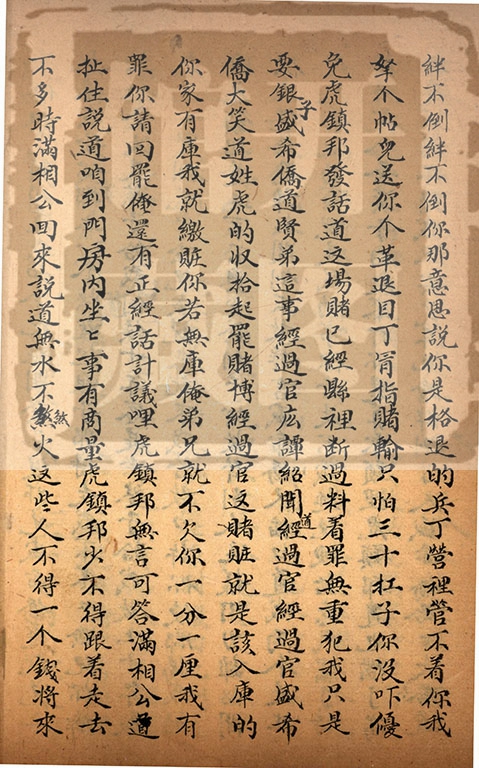 絆不倒絆不倒你那意思説你是格退的兵丁營裡管不着你我
拏个帖兒送你个革退目丁肎指賭輸只怕三十扛子你没吓優
免虎鎮邦發話道这場賭已經縣裡断過料着罪無重犯我只是
要銀子盛希僑道賢弟這事經過官広譚紹聞道經過官經過官盛希
僑大笑道姓虎的収拾起罷賭博經過官这賭賍就是該入庫的
你家有庫我就繳賍你若無庫俺弟兄就不欠你一分一厘我有
罪你請回罷俺還有正經話計議哩虎鎮邦無言可答滿相公道
扯住説道咱到門房内坐坐事有商量虎鎮邦少不得跟着走去
不多時滿相公回來説道無水不煞火这些人不得一个錢將來